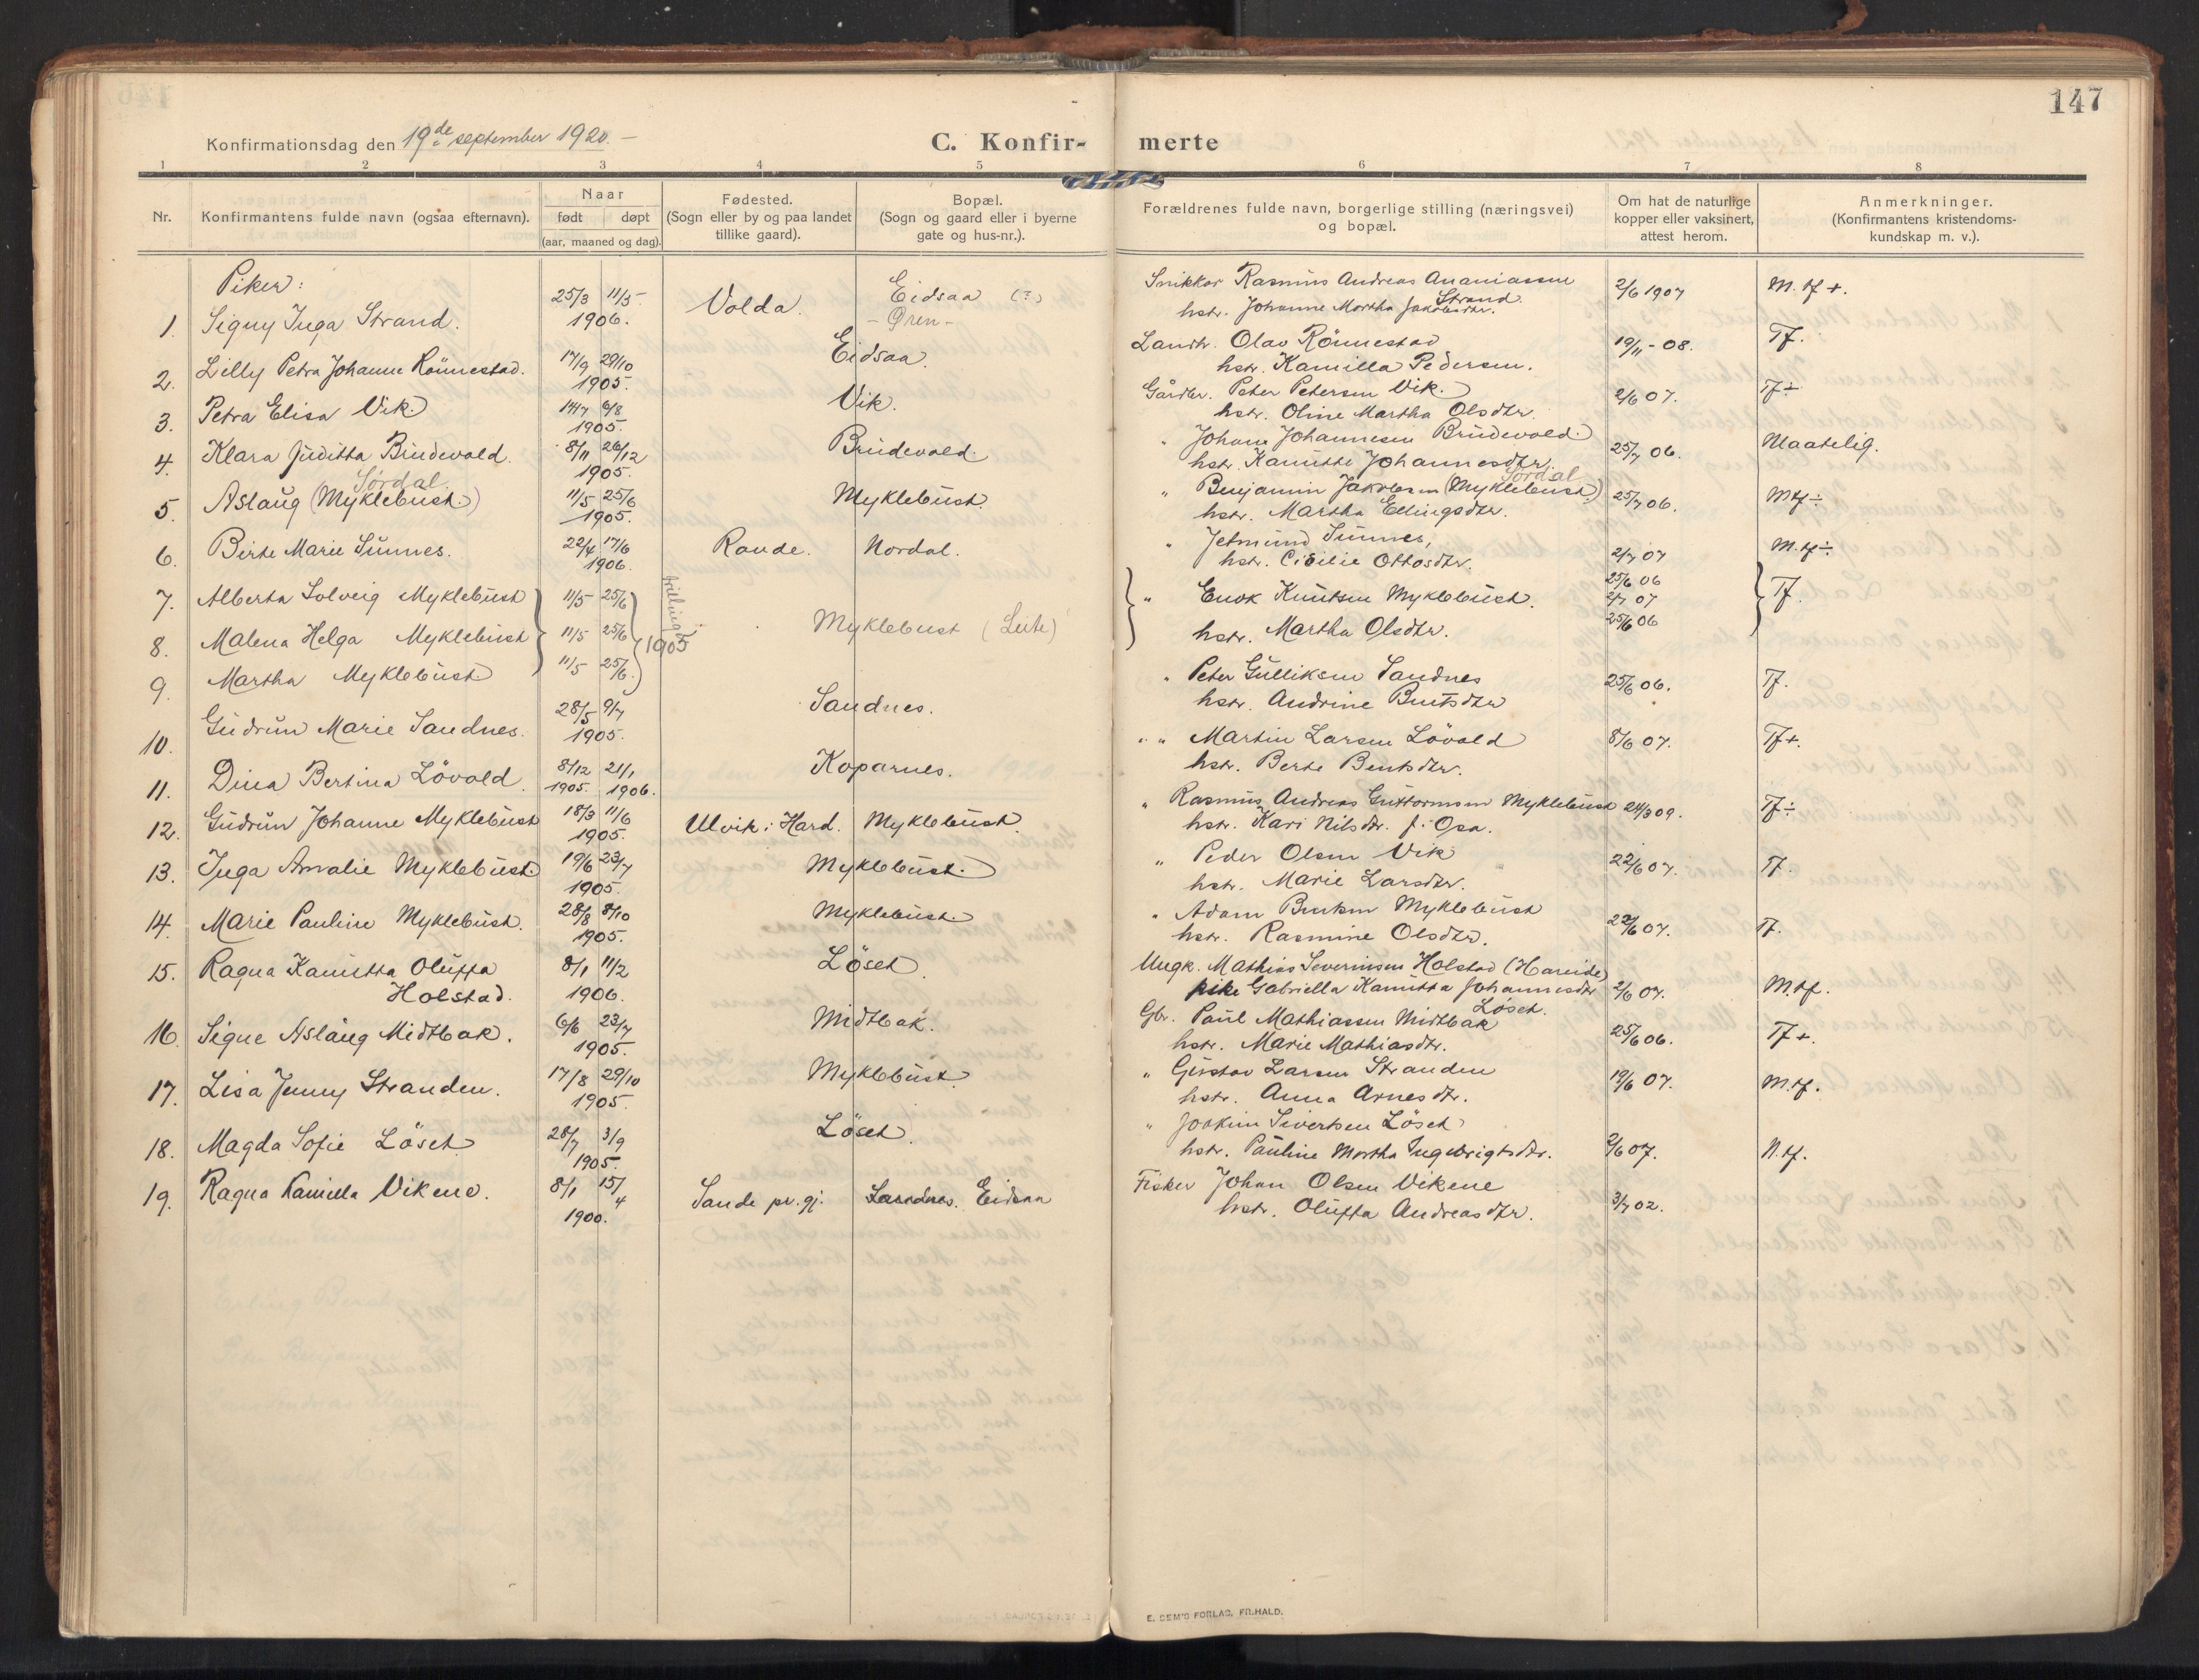 147
Konfirmationsdag den 19de september 1920. -
C. Konfir-
merte
1 2 3 4 5 6 7 8
Nr.
Konfirmantens fulde navn (ogsaa efternavn).
Naar
født døpt
(aar, maaned og dag).
Fødested.
(Sogn eller by og paa landet
tillike gaard).
Bopæl.
(Sogn og gaard eller i byerne
gate og hus-nr.).
Forældrenes fulde navn, borgerlige stilling (næringsvei)
og bopæl.
Om hat de naturlige
kopper eller vaksinert,
attest herom.
Anmerkninger.
(Konfirmantens kristendoms-
kundskap m. v.).
Piker:
1. Signy Inga Strand. 25/3 11/5 1906. Volda. Eidsaa (?)
- Øren -
Snikkar Rasmus Andreas Ananiassen Strand
hstr. Johanne Martha Jakobsdtr. 2/6 1907 M. tf +.
2. Lilly Petra Johanne Rönnestad. 17/9 29/10 1905. Eidsaa.
Landh. Olav Rönnestad
hstr. Kamilla Pedersen. 19/11 - 08. Tf.
3. Petra Elisa Vik. 14/7 6/8 1905. Vik.
Gårdbr. Peter Petersen Vik.
hstr. Oline Martha Olsdtr. 2/6 07. Tf ÷
4. Klara Juditta Brudevold. 8/11 26/12 1905. Brudevold.
" Johan Johannesen Brudevold.
hstr. Kanutte Johannesdtr. 25/7 06. Maatelig.
Sørdal
5. Aslaug (Myklebust) 11/5 25/6 1905. Myklebust.
Sørdal
" Benjamin Jakobsen (Myklebust)
hstr. Martha Ellingsdtr. 25/7 06. Mtf ÷
6. Birte Marie Sunnes. 22/4 17/6 1906. Rovde. Nordal.
" Jetmund Sunnes,
hstr. Cicilie Ottosdtr. 2/7 07 M. tf ÷
7. Alberta Solveig Myklebust 11/5 25/6
trilling
8. Malena Helga Myklebust 11/5 25/6 1905 Myklebust (Leite)
9. Martha Myklebust 11/5 25/6.
" Enok Knutsen Myklebust.
hstr. Martha Olsdtr.
25/6 06
2/7 07
25/6 06
Tf.
10. Gudrun Marie Sandnes. 28/5 9/7 1905. Sandnes.
" Peter Gulliksen Sandnes
hstr. Andrine Bentsdtr 25/6 06. Tf.
11. Dina Bertina Lövold. 8/12 1905. 21/1 1906. Koparnes.
" Martin Larsen Lövold
hstr. Berte Bentsdtr. 8/6 07. Tf+.
12. Gudrun Johanne Myklebust 18/3 11/6 1905. Ulvik i Hard. Myklebust.
" Rasmus Andreas Guttormsen Myklebust 24/3 09. Tf ÷
hstr. Kari Nilsdtr. f. Osa.
13. Inga Amalie Myklebust 19/6 23/7 1905. Myklebust.
" Peder Olsen Vik
hstr. Marie Larsdtr. 22/6 07. Tf.
14. Marie Pauline Myklebust. 28/8 8/10 1905. Myklebust.
" Adam Bentsen Myklebust
hstr. Rasmine Olsdtr. 22/6 07. Tf.
15. Ragna Kanutta Oluffa 8/1 11/2 Löset.
Holstad. 1906.
Ungk. Mathias Severinsen Holstad (Hareide)
pike Gabriella Kanutta Johannesdtr 2/6 07. M.tf.
Löset.
16. Signe Aslaug Midtbak. 6/6 23/7 1905. Midtbak.
Gbr. Paul Mathiassen Midtbak
hstr. Marie Mathiasdtr. 25/6 06. Tf +.
17. Lisa Jenny Stranden. 17/8 29/10 1905. Myklebust.
" Gustav Larsen Stranden
hstr. Anna Arnesdtr. 19/6 07. M.tf.
18. Magda Sofie Löset 28/7 3/9 1905. Löset.
" Joakim Sivertsen Löset
hstr. Pauline Martha Ingebrigtsdtr. 2/6 07. N.tf.
19. Ragna Kamilla Vikene. 8/1 15/4 1900. Sande pr.gj. Larsdnes. Eidsaa
Fisker Johan Olsen Vikene
hstr. Oluffa Andreasdtr. 3/7 02.
E. SEM'S FORLAG, FR.HALD.